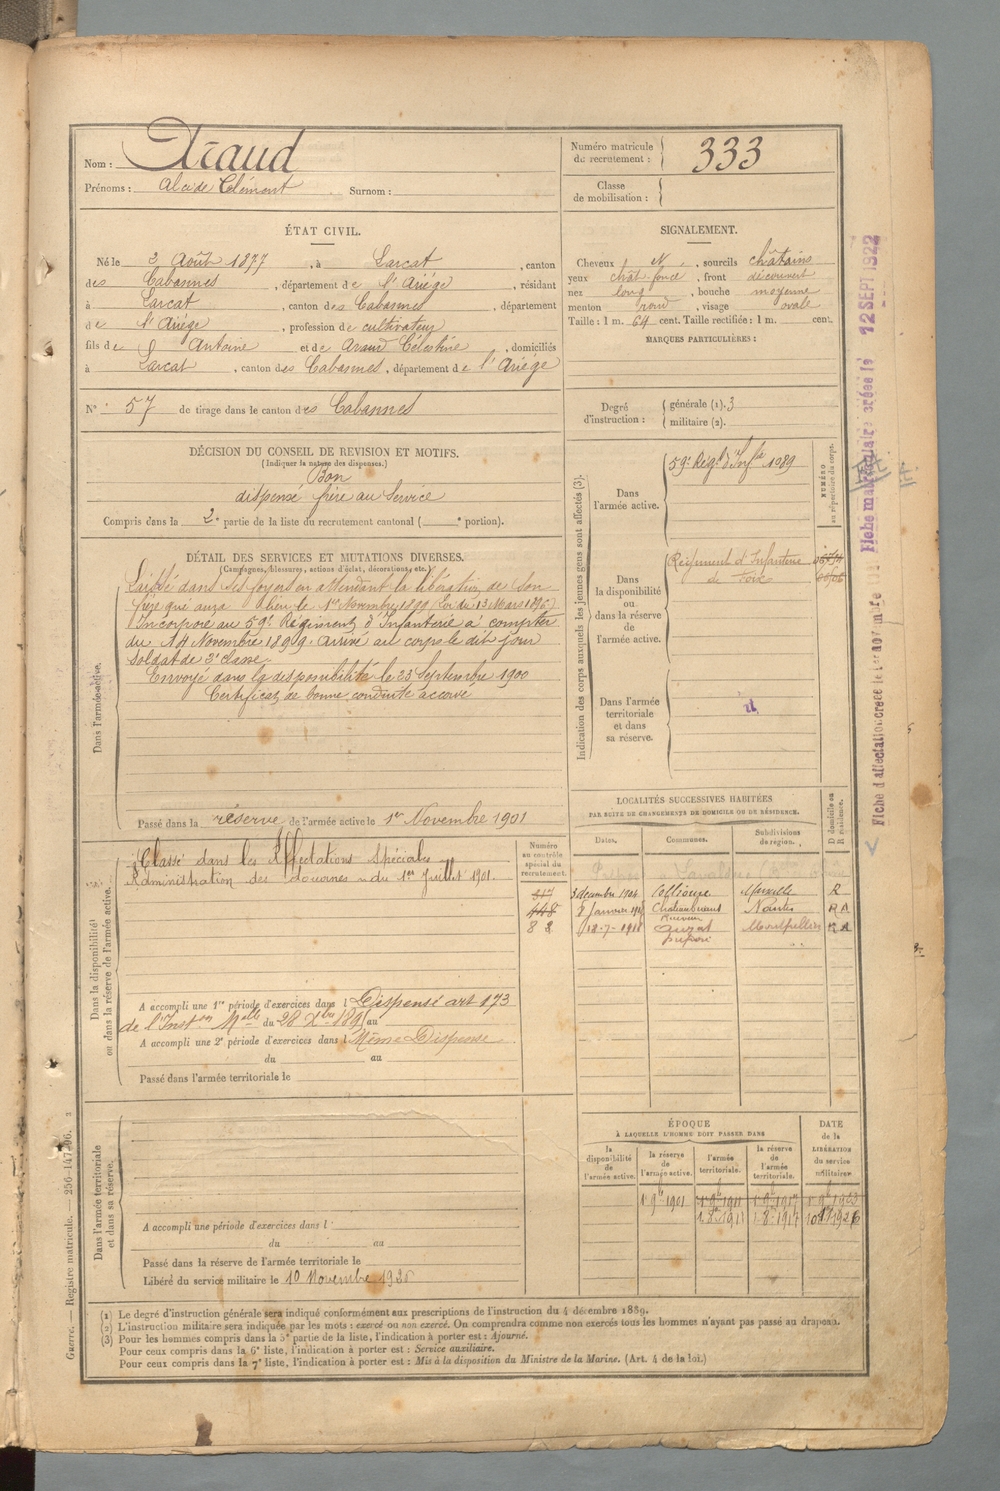 Nom : Araud
Prénoms : Alcide Clément Surnom :
Numéro matricule du recrutement : 333
Classe de mobilisation :
ÉTAT CIVIL.
Né le 2 Août 1877, à Larcat, canton
des Cabannes, département de l'Ariège, résidant
à Larcat, canton des Cabannes, département
de l'Ariège, profession de cultivateur
fils de Antoine et de Araud Célestine, domiciliés
à Larcat, canton des Cabannes, département de l'Ariège
N° 57 de tirage dans le canton des Cabannes
SIGNALEMENT.
Cheveux N, sourcils châtains
yeux chât foncé, front découvert
nez long, bouche moyenne
menton rond, visage ovale
Taille : 1 m. 64 cent. Taille rectifiée : 1 m. cent.
MARQUES PARTICULIÈRES :
Degré d'instruction : générale (1). 3
militaire (2).
DÉCISION DU CONSEIL DE REVISION ET MOTIFS.
(Indiquer la nature des dispenses.)
Bon
dispensé frère au Service
Compris dans la 2e partie de la liste du recrutement cantonal ( e portion).
DÉTAIL DES SERVICES ET MUTATIONS DIVERSES.
(Campagnes, blessures, actions d'éclat, décorations, etc.)
Dans l'armée active.
Laissé dans ses foyers en attendant la libération de son
frère qui aura lieu le 1er Novembre 1899 (Loi du 13 Mars 1896)
Incorporé au 59e Régiment d'Infanterie à compter
du 14 Novembre 1899 arrivé au corps le dit jour
soldat de 2e classe.
Envoyé dans la disponibilité le 23 Septembre 1900
Certificat de bonne conduite accordé
Passé dans la réserve de l'armée active le 1er Novembre 1901
Indication des corps auxquels les jeunes gens sont affectés (3).
NUMÉRO au répertoire du corps.
Dans l'armée active.
59e Régt d'Infie 1089
Dans la disponibilité ou dans la réserve de l'armée active.
Régiment d'Infanterie
de Foix
Dans l'armée territoriale et dans sa réserve.
Dans la disponibilité ou dans la réserve de l'armée active.
Classé dans les Affectations Spéciales
Administration des douanes du 1er Juillet 1901.
Numéro au contrôle spécial du recrutement.
417
448
82
A accompli une 1re période d'exercices dans l Dispensé art 173
de l'Inston Mlle du 28 Xbre 1895 au
A accompli une 2e période d'exercices dans l Même Dispense
du au
Passé dans l'armée territoriale le
LOCALITÉS SUCCESSIVES HABITÉES
PAR SUITE DE CHANGEMENTS DE DOMICILE OU DE RÉSIDENCE.
Dates. Communes. Subdivisions de région. D domicile ou R résidence.
3 décembre 1904 Collioure Marseille R
Nantes R
18-7-1918 Montpellier R
Dans l'armée territoriale et dans sa réserve.
A accompli une période d'exercices dans l
du au
Passé dans la réserve de l'armée territoriale le
Libéré du service militaire le 10 Novembre 1926
ÉPOQUE
À LAQUELLE L'HOMME DOIT PASSER DANS
la disponibilité de l'armée active.
la réserve de l'armée active.
l'armée territoriale.
la réserve de l'armée territoriale.
DATE de la LIBÉRATION du service militaire
1 9bre 1901 1 9bre 1911 1 9bre 1917 1 9bre 1923
1 8bre 1911 1-8-1917 10 9bre 1926
(1) Le degré d'instruction générale sera indiqué conformément aux prescriptions de l'instruction du 4 décembre 1889.
(2) L'instruction militaire sera indiquée par les mots : exercé ou non exercé. On comprendra comme non exercés tous les hommes n'ayant pas passé au drapeau.
(3) Pour les hommes compris dans la 5e partie de la liste, l'indication à porter est : Ajourné.
Pour ceux compris dans la 6e liste, l'indication à porter est : Service auxiliaire.
Pour ceux compris dans la 7e liste, l'indication à porter est : Mis à la disposition du Ministre de la Marine. (Art. 4 de la loi.)
Guerre. — Registre matricule. — 256-147-96.
Fiche matriculaire créée le 12 SEPT 1922
Fiche d'affectation créée le 1er novembre